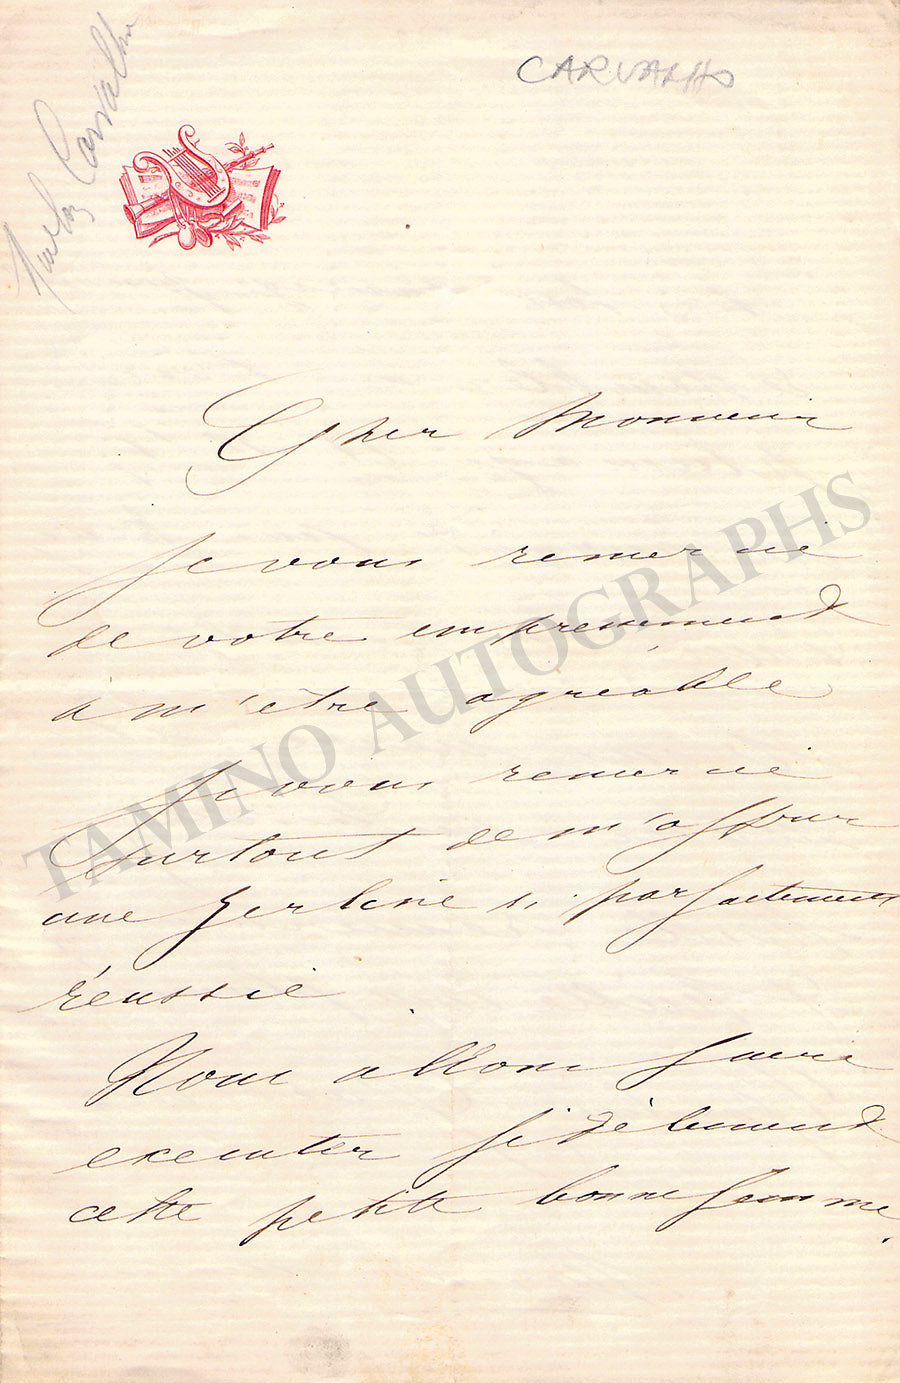 CARVALHO
Carvalho
Cher Monsieur
Je vous remercie
de votre empressement
à m'être agréable
Je vous remercie
surtout de m'offrir
une Zerline si parfaitement
réussie
Nous allons faire
executer fidèlement
cette petite bonne femme.
TAMINO AUTOGRAPHS